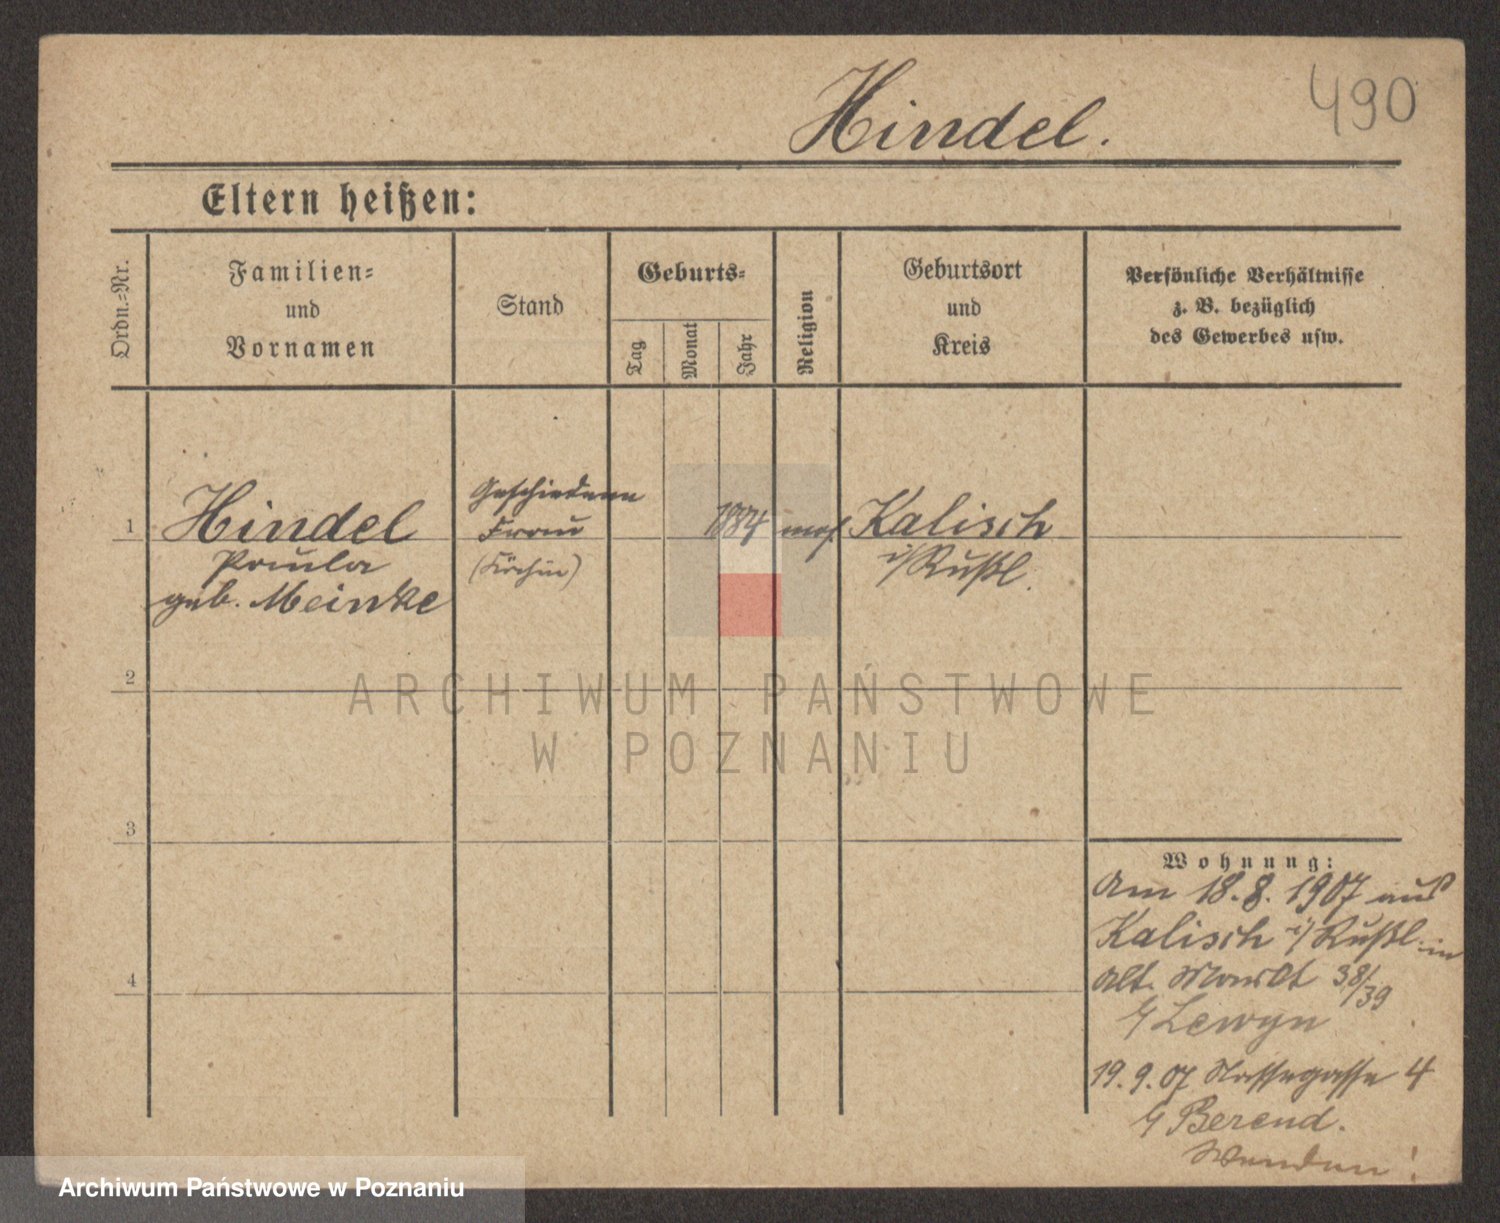 490
Hindel.
Eltern heißen:
Ordn.-Nr.
Familien-
und
Vornamen
Stand
Geburts-
Tag
Monat
Jahr
Religion
Geburtsort
und
Kreis
Persönliche Verhältnisse
z. B. bezüglich
des Gewerbes usw.
1
Hindel
Paula
geb. Meinke
Geschiedene
Frau
(Köchin)
1884
mos.
Kalisch
i/Rußl.
2
ARCHIWUM PAŃSTWOWE
W POZNANIU
3
4
Wohnung:
Am 18.8.1907 aus
Kalisch i/Rußl. in
Alt. Markt 38/39
b/ Lewyn
19.9.07 Nassegasse 4
b/ Berend.
Wenden!
Archiwum Państwowe w Poznaniu